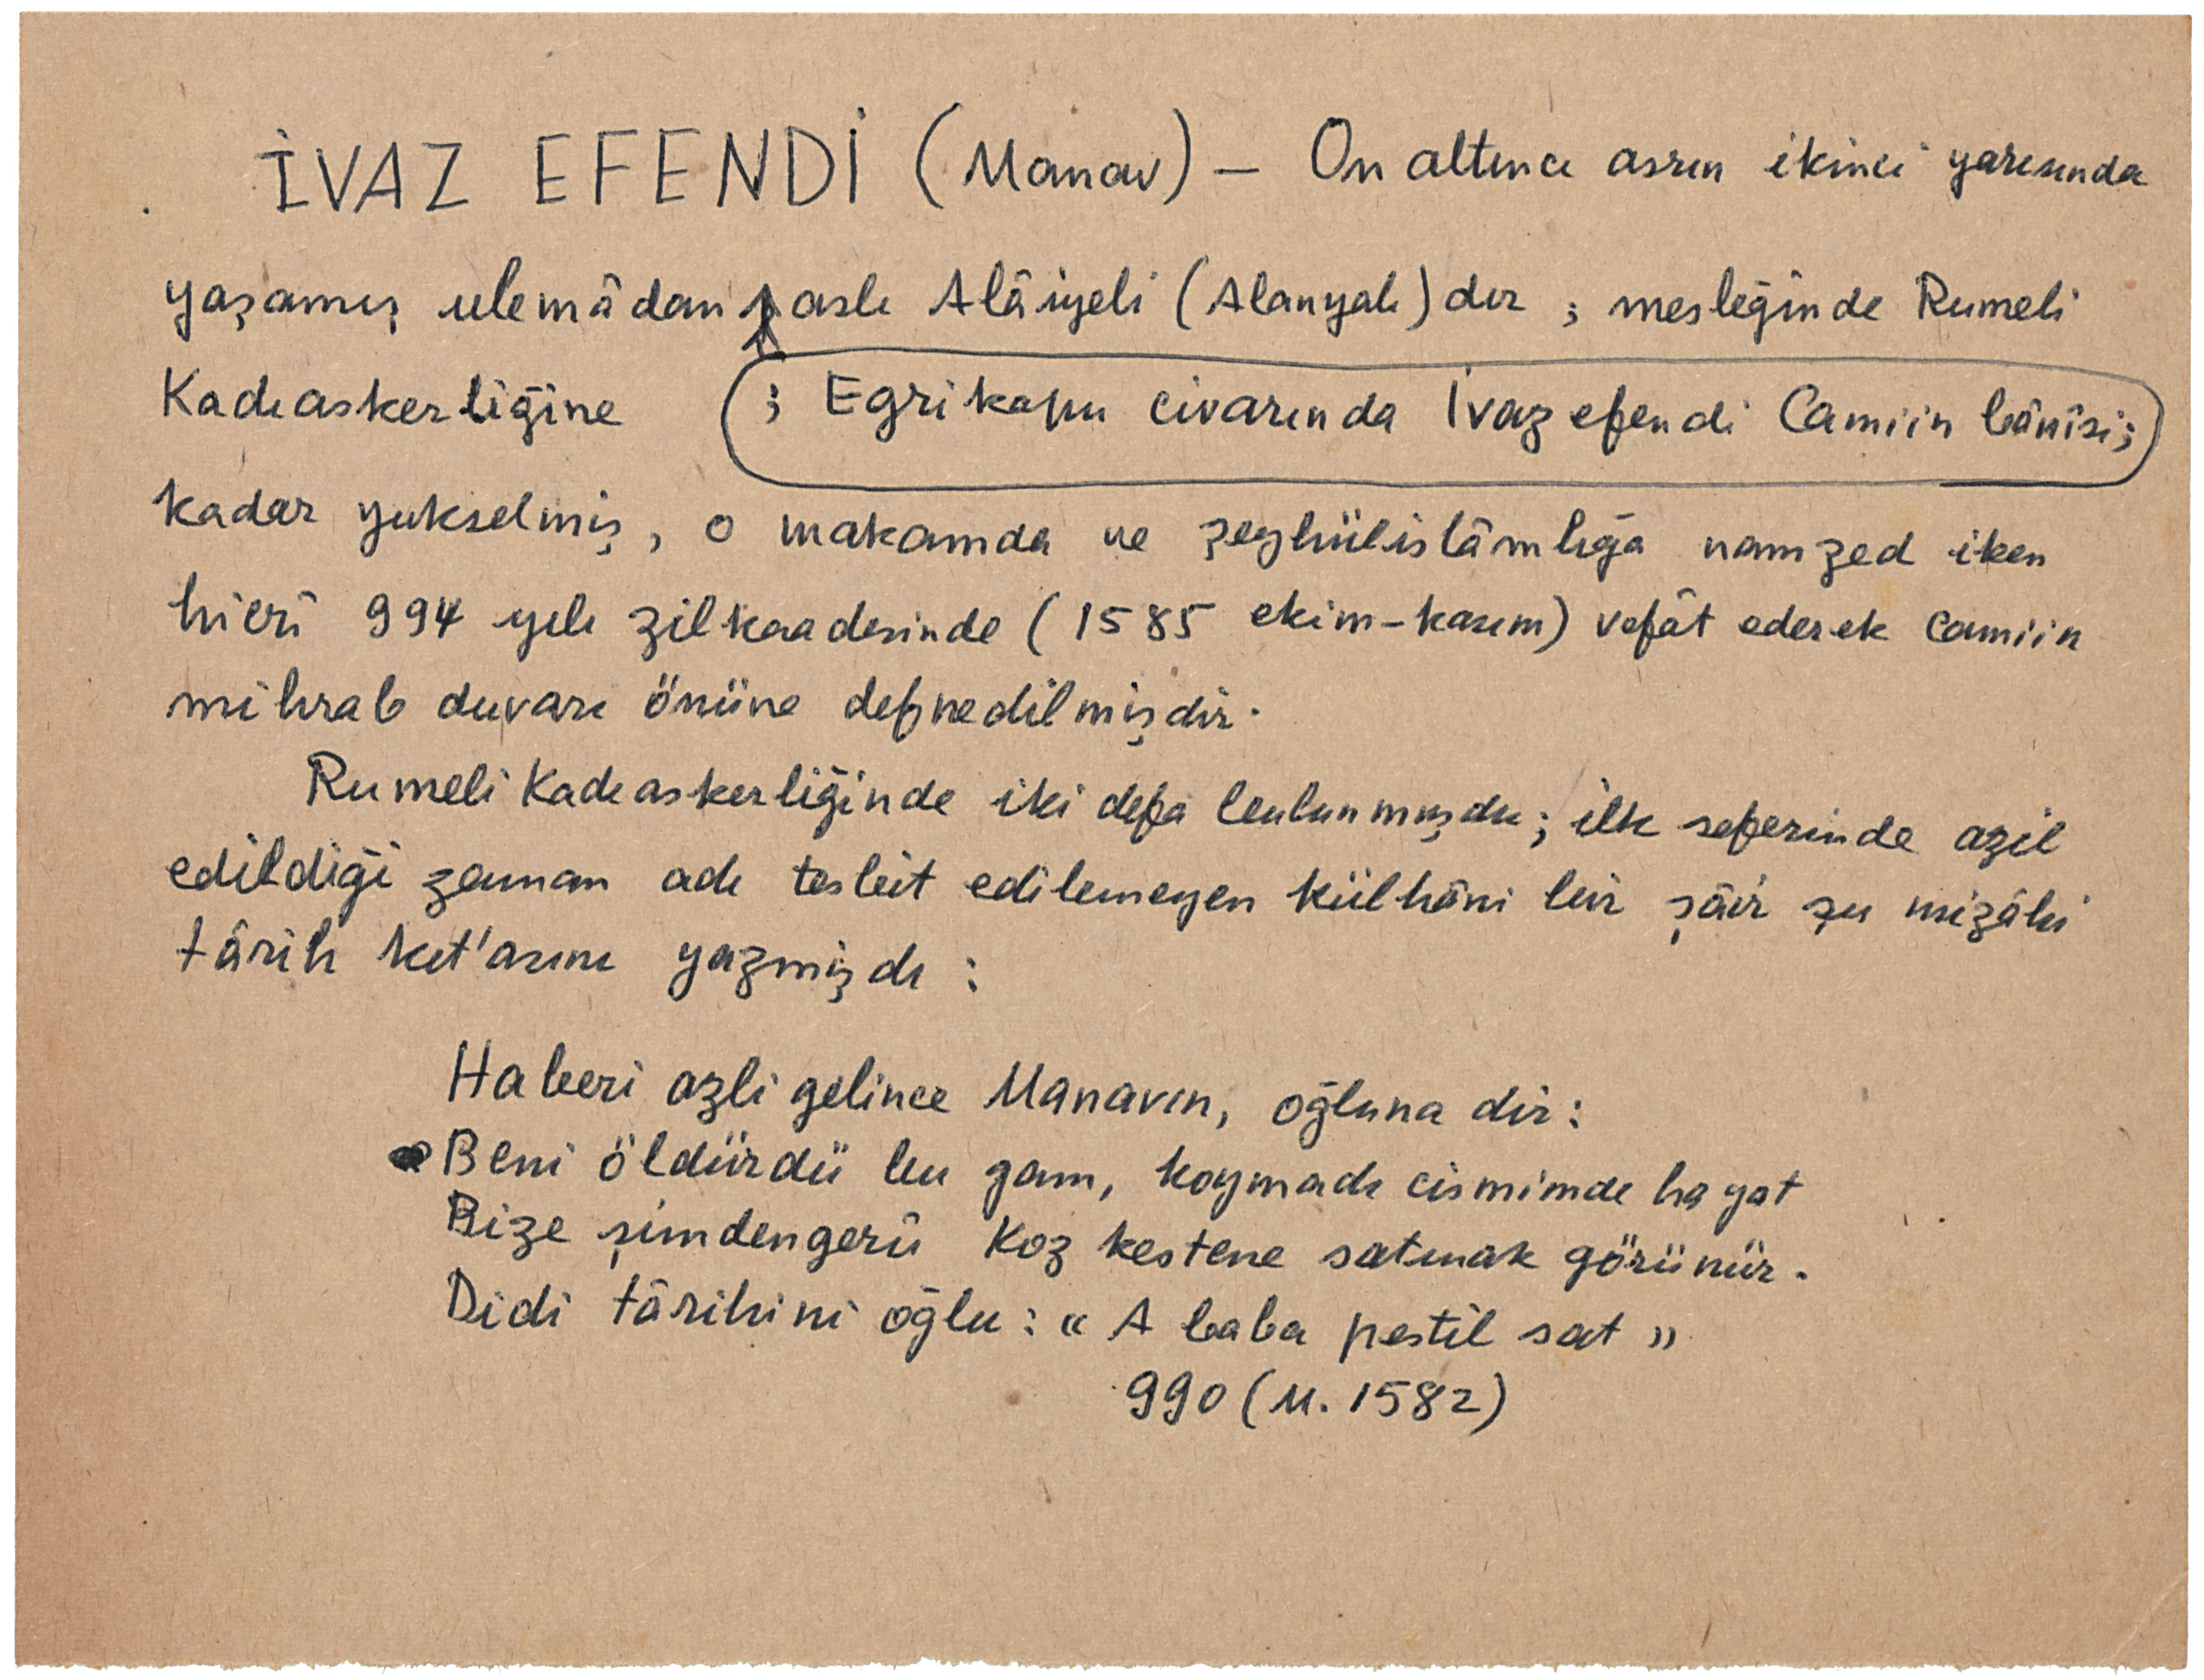 İVAZ EFENDİ (Manav) — On altıncı asrın ikinci yarısında
yaşamış ulemâdan aslı Alâiyeli (Alanyalı)dır ; mesleğinde Rumeli
Kadıaskerliğine
; Egrikapu civarında İvazefendi Camiin bânîsi;
kadar yukselmiş, o makamda ve şeyhülislâmlığa namzed iken
hicrî 994 yılı zilkaadesinde (1585 ekim-kasım) vefât ederek Camiin
mihrab duvarı önüne defnedilmişdir.
Rumeli Kadıaskerliğinde iki defa bulunmuşdu; ilk seferinde azil
edildiği zaman adı tesbit edilemeyen külhâni bir şâir şu mizâhi
târih kıt'asını yazmişdı :
Haberi azli gelince Manavın, oğluna dir:
Beni öldürdü bu gam, koymadı cismimde hayat
Bize şimdengerü Koz kestene satmak görünür.
Didi târihini oğlu : « A baba pestil sat »
990 (M. 1582)